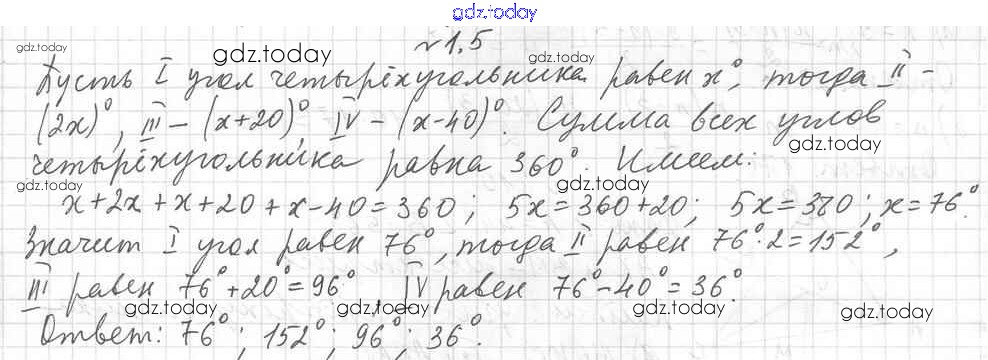 gdz.today
№1,5
gdz.today gdz.today gdz.today
Пусть I угол четырёхугольника равен x°, тогда II –
(2x)°, III – (x+20)°, IV – (x-40)°. Сумма всех углов
gdz.today
четырёхугольника равна 360°. Имеем:
gdz.today gdz.today
x+2x+x+20+x-40=360; 5x=360+20; 5x=380; x=76°.
gdz.today
Значит I угол равен 76°, тогда II равен 76°·2=152°,
III равен 76°+20°=96°, IV равен 76°-40°=36°.
gdz.today gdz.today gdz.today
Ответ: 76°; 152°; 96°; 36°.
gdz.today